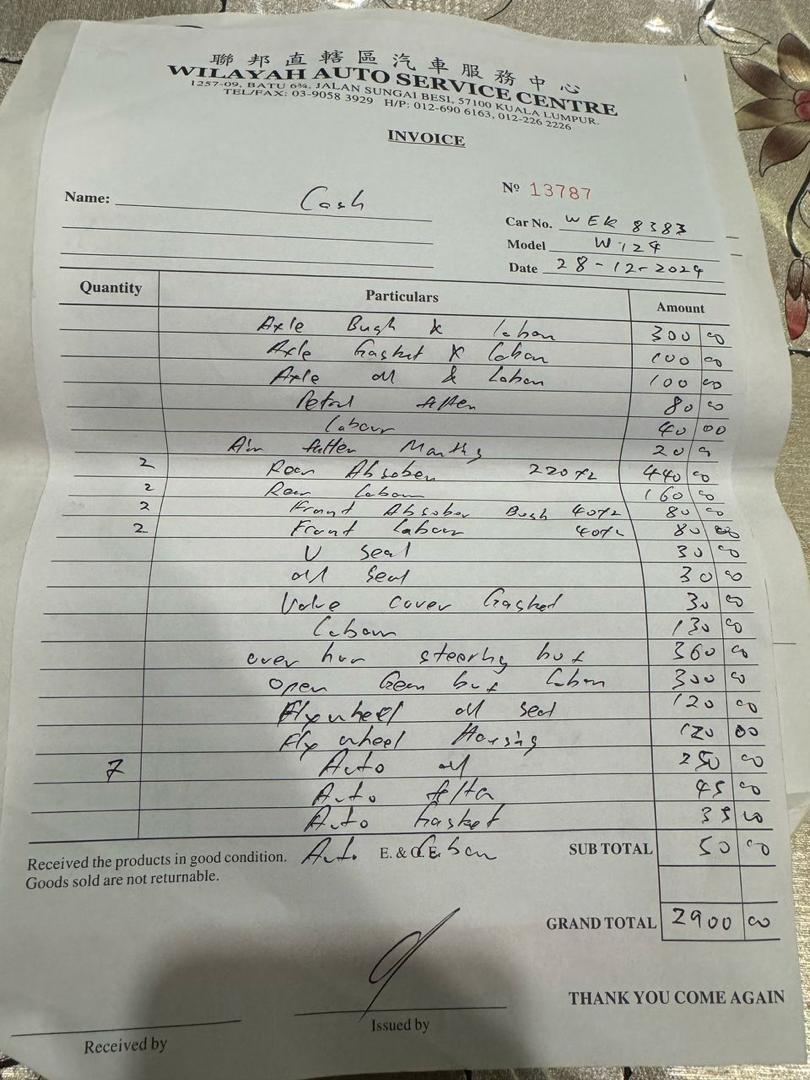 聯邦直轄區汽車服務中心
WILAYAH AUTO SERVICE CENTRE
1257-09, BATU 6¾, JALAN SUNGAI BESI, 57100 KUALA LUMPUR.
TEL/FAX: 03-9058 3929 H/P: 012-690 6163, 012-226 2226
INVOICE
Nº 13787
Name: Cash
Car No. WEK 8383
Model W124
Date 28-12-2024
Quantity Particulars Amount
Axle Bush & Labour 300 00
Axle Gasket & Labour 100 00
Axle oil & Labour 100 00
Petrol filter 80 00
Labour 40 00
Air filter 20 00
2 Rear Absober 220x2 440 00
2 Rear Labour 160 00
2 Front Absober Bush 40x2 80 00
2 Front Labour 40x2 80 00
V seal 30 00
oil seal 30 00
Valve cover Gasket 30 00
Labour 130 00
over hur steering box 360 00
open Gear box Labour 300 00
Flywheel oil seal 120 00
Fly wheel Housing 120 00
7 Auto oil 250 00
Auto filter 45 00
Auto Gasket 35 00
Auto Labour 50 00
Received the products in good condition. E. & O. E. SUB TOTAL
Goods sold are not returnable.
GRAND TOTAL 2900 00
THANK YOU COME AGAIN
Received by
Issued by